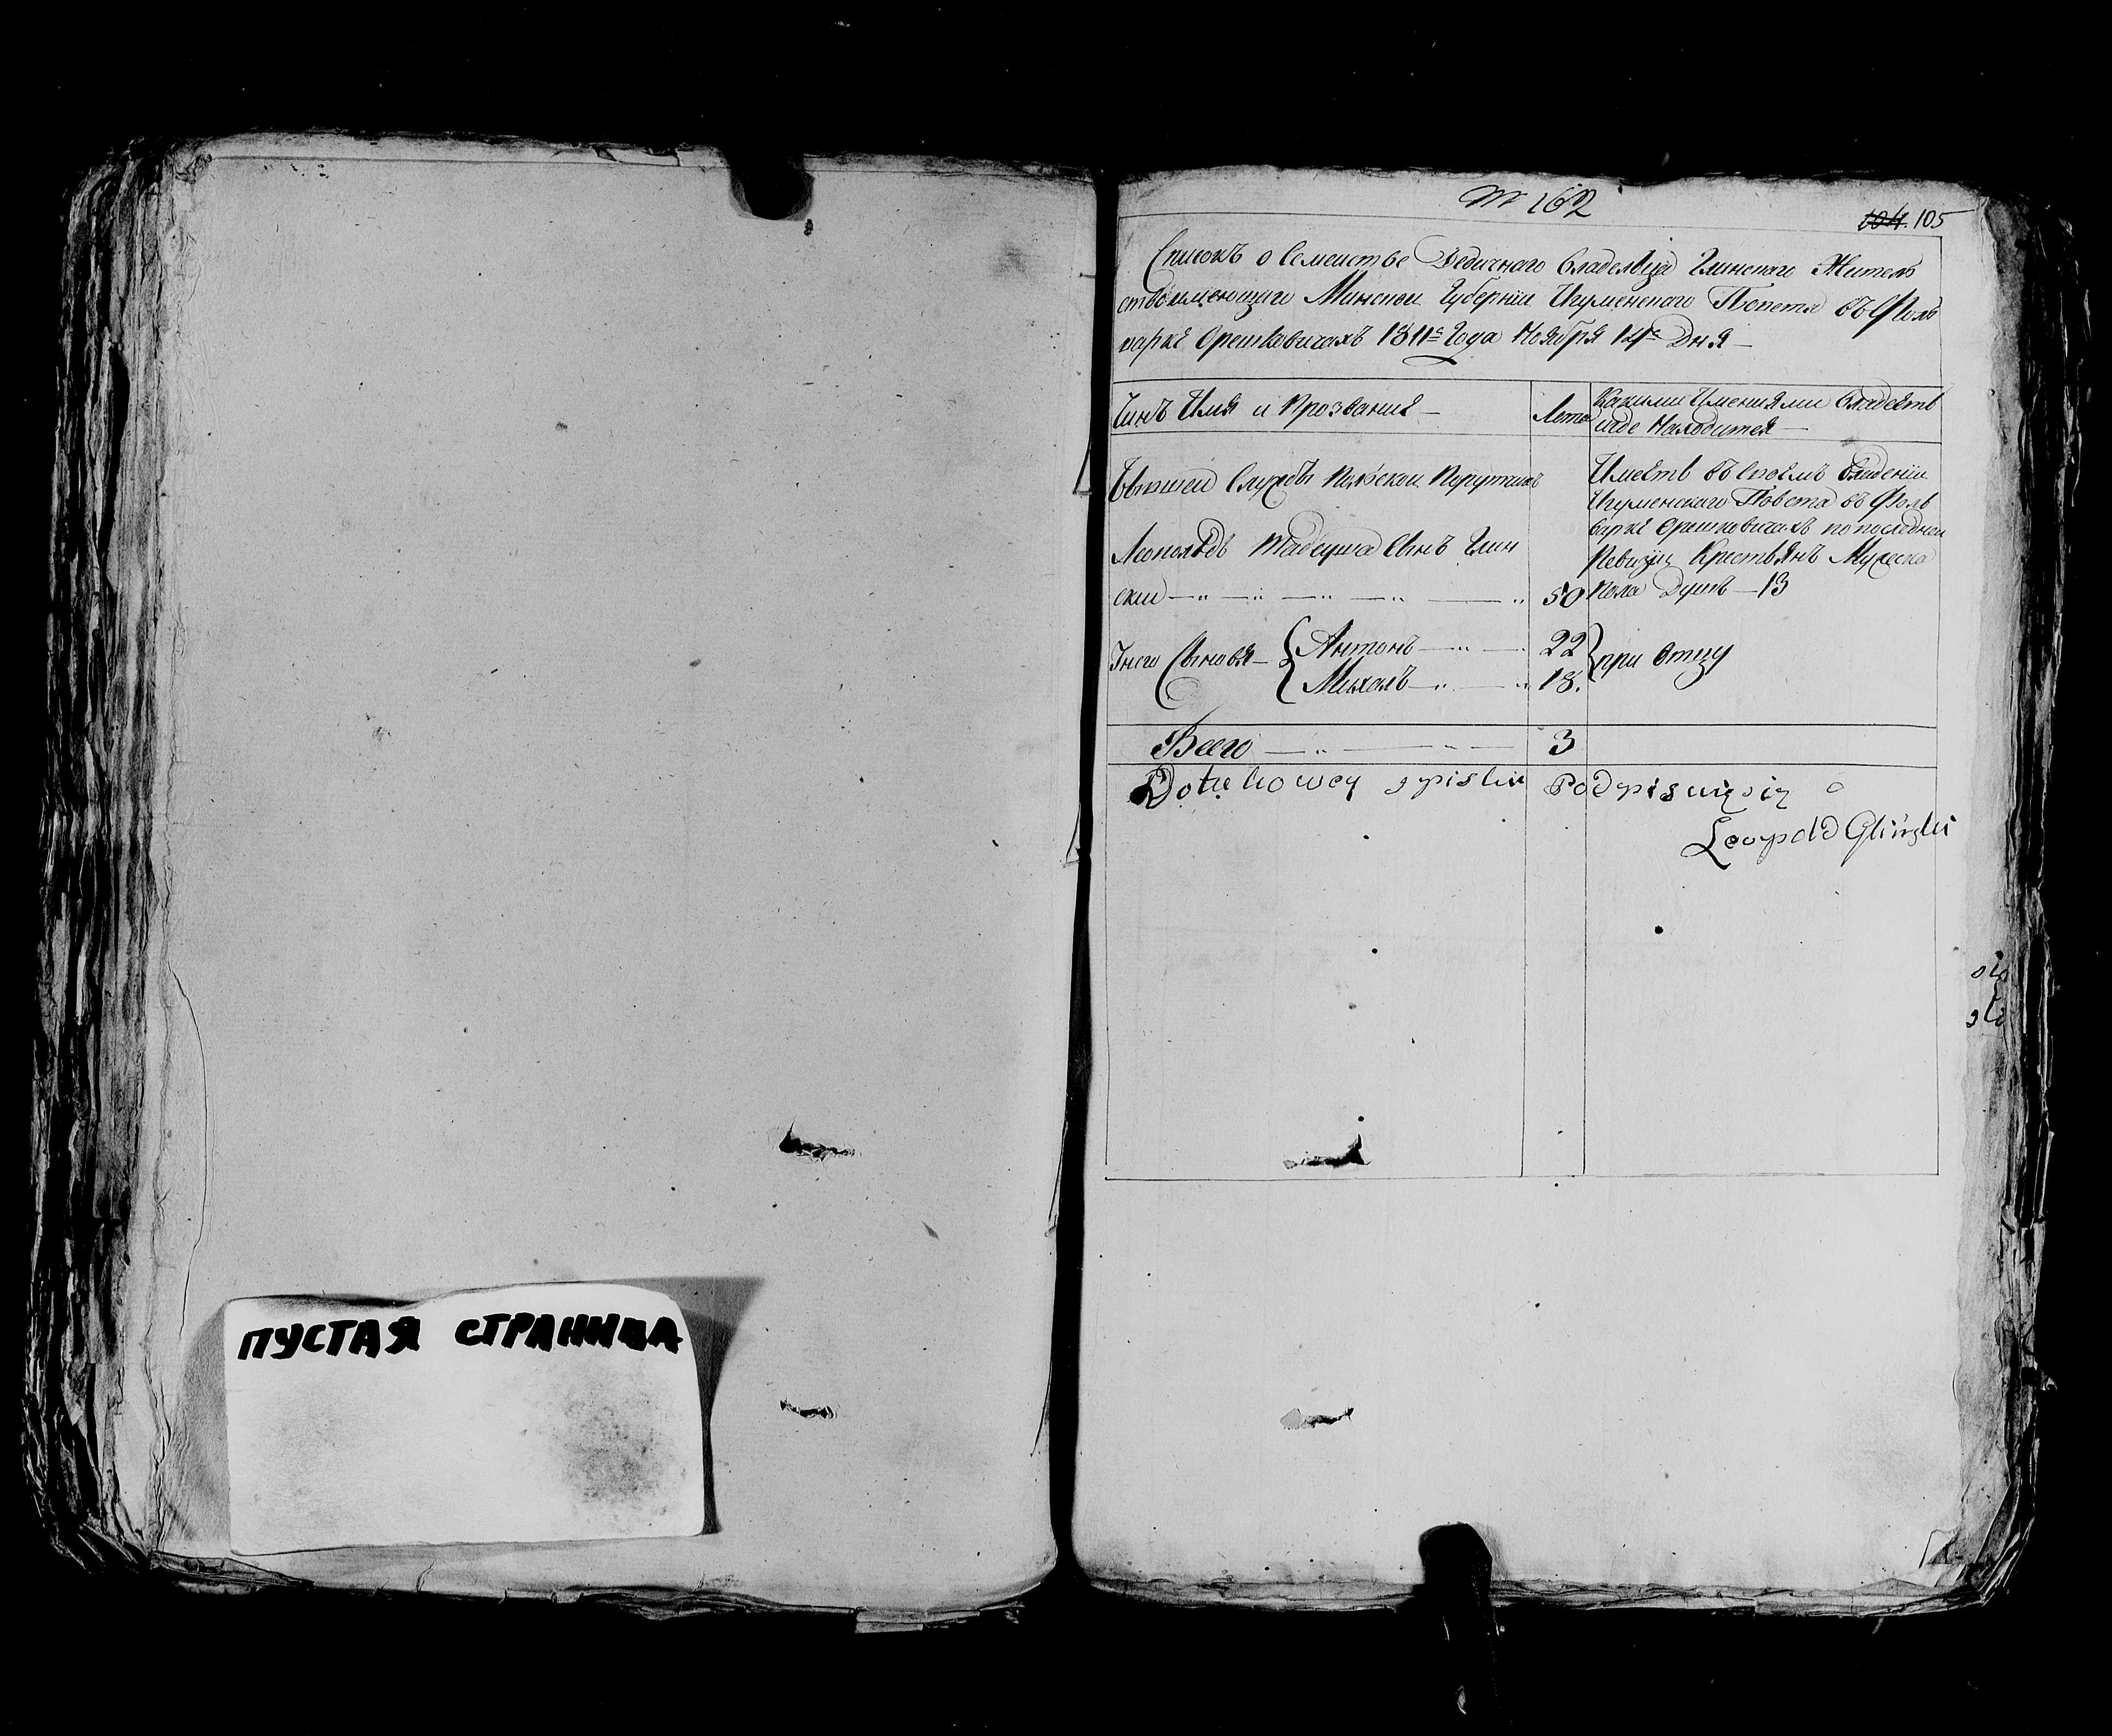 ПУСТАЯ СТРАНИЦА
№ 162
104. 105
Списокъ о Семеистве Дедичнаго Владельца Глинскаго Житель
ствоимеющаго Минской Губернïи Игуменскаго Повета въ Фоль
варке Орешковичахъ 1811г Года Ноября 14го Дня
Чинъ Имя и Прозвание
Лета
Какими Имениями Владеетъ
игде Находится
Бывшеи Службы Полскои Поручикъ
Леопольдъ Тадеуша Сынъ Глин
ски 50
Имеетъ въ своемъ владенïи
Игуменскаго Повета въ Фоль
варке Орешковичахъ по последнеи
Ревизïи Крестьянъ Мужеска
Пола Душъ 13
Унего Сыновя Антонъ 22
Михалъ 18.
при Отцу
Всего 3
Do takowey spisku Podpisuię się
Leopold Gliński